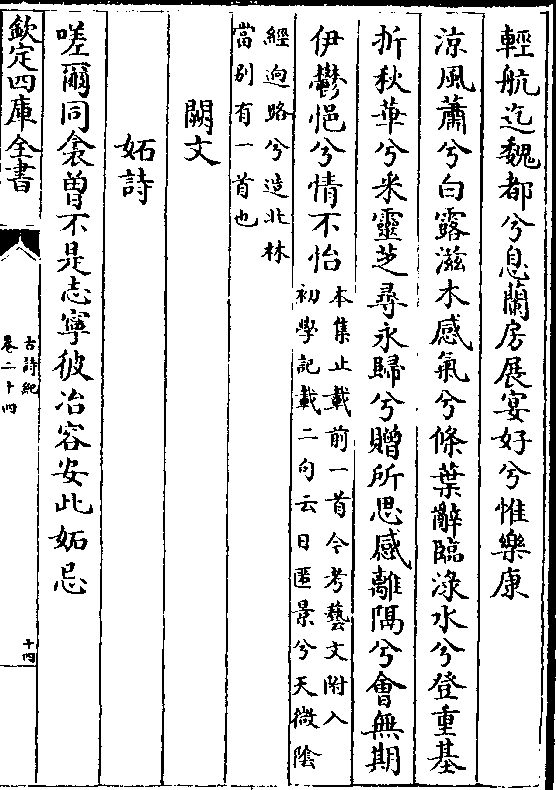 輕航迄魏都兮息蘭房展宴好兮惟樂康
涼風蕭兮白露滋木感氣兮條葉辭臨淥水兮登重基
折秋華兮采靈芝尋永歸兮贈所思感離隅兮會無期
伊鬱悒兮情不怡
本集止載前一首今考藝文附入
初學記載二句云日匿景兮天微陰
經迥路兮造北林
當別有一首也
闕文
妬詩
嗟爾同衾曽不是志寧彼冶容安此妬忌
欽定四庫全書
古詩紀
卷二十四
十四